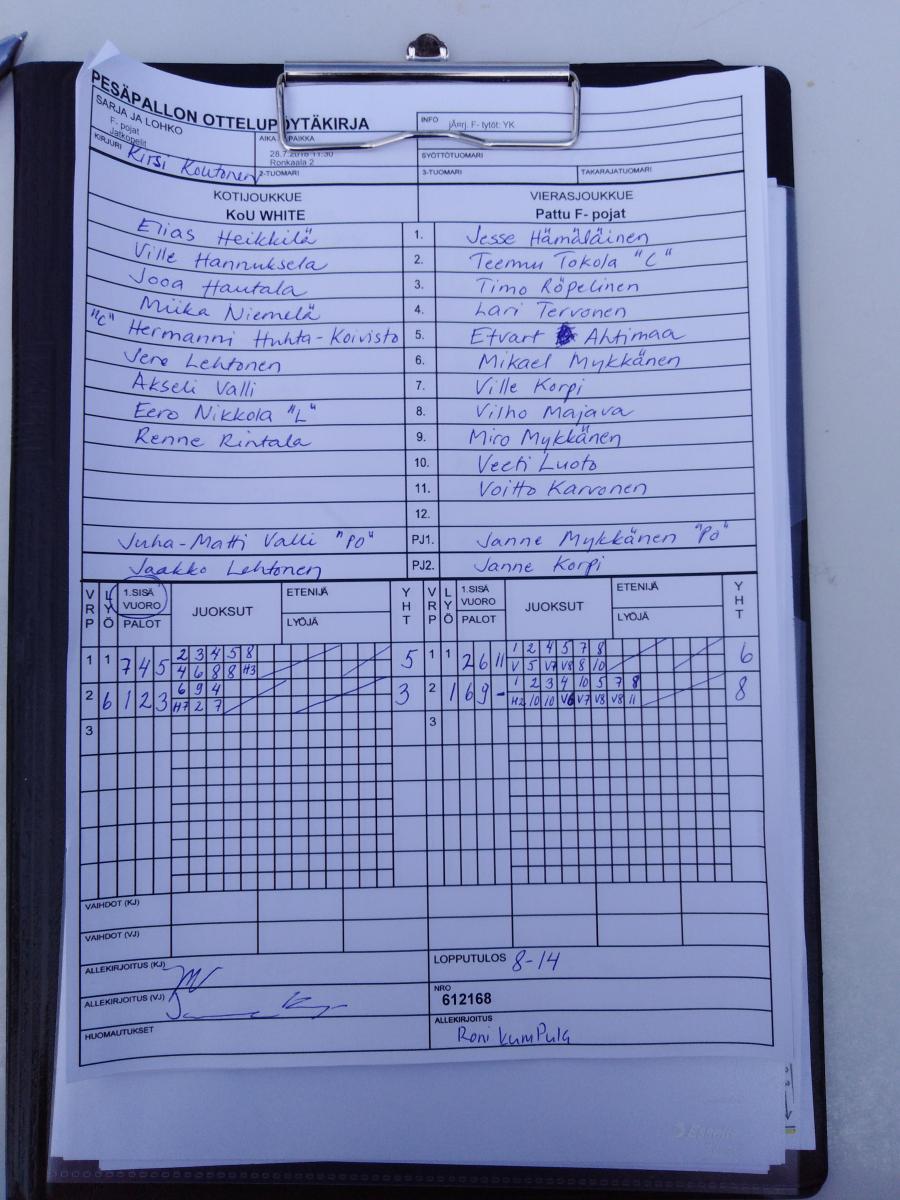 PESÄPALLON OTTELUPÖYTÄKIRJA
SARJA JA LOHKO
F- pojat
Jatkopelit
AIKA PAIKKA
28.7.2016 11:30
Ronkaala 2
INFO jÄ¤rj. F- tytöt: YK
SYÖTTÖTUOMARI
KIRJURI Kirsi Koutonen
2-TUOMARI
3-TUOMARI
TAKARAJATUOMARI
KOTIJOUKKUE VIERASJOUKKUE
KoU WHITE Pattu F- pojat
Elias Heikkilä 1. Jesse Hämäläinen
Ville Hannuksela 2. Teemu Tokola "C"
Jooa Hautala 3. Timo Röpelinen
Miika Niemelä 4. Lari Tervonen
"C" Hermanni Huhta-Koivisto 5. Etvart Ahtimaa
Jere Lehtonen 6. Mikael Mykkänen
Akseli Valli 7. Ville Korpi
Eero Nikkola "L" 8. Vilho Majava
Renne Rintala 9. Miro Mykkänen
10. Veeti Luoto
11. Voitto Karvonen
12.
Juha-Matti Valli "PO" PJ1. Janne Mykkänen "PO"
Jaakko Lehtonen PJ2. Janne Korpi
VRP LYÖ 1.SISÄ VUORO PALOT JUOKSUT ETENIJÄ LYÖJÄ YHT VRP LYÖ 1.SISÄ VUORO PALOT JUOKSUT ETENIJÄ LYÖJÄ YHT
1 1 7 4 5 2 3 4 5 8 5 1 1 2 6 11 1 2 4 5 7 8 6
4 6 8 8 H3 V 5 V7 V8 8 10
2 6 1 2 3 6 9 4 3 2 1 6 9 - 1 2 3 4 10 5 7 8 8
H7 2 7 H2 10 10 V6 V7 V8 V8 11
3 3
VAIHDOT (KJ)
VAIHDOT (VJ)
ALLEKIRJOITUS (KJ) LOPPUTULOS 8-14
ALLEKIRJOITUS (VJ) NRO
612168
HUOMAUTUKSET ALLEKIRJOITUS
Roni Kumpula